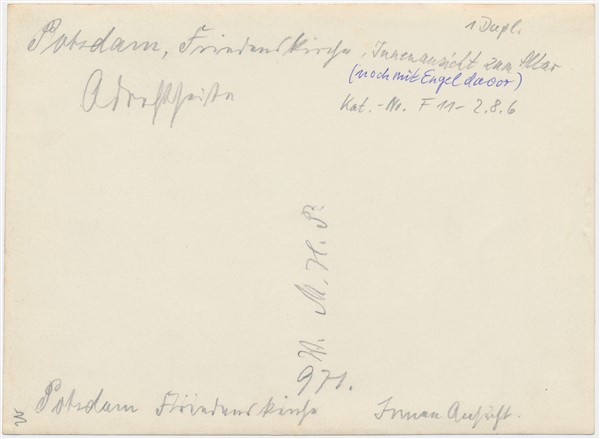 1 Dupl.
Potsdam, Friedenskirche, Innenansicht zum Altar
(noch mit Engel davor)
Kat.-No. F 11-2.8.6
M. H. P.
971.
Potsdam Friedenskirche Innen Ansicht.